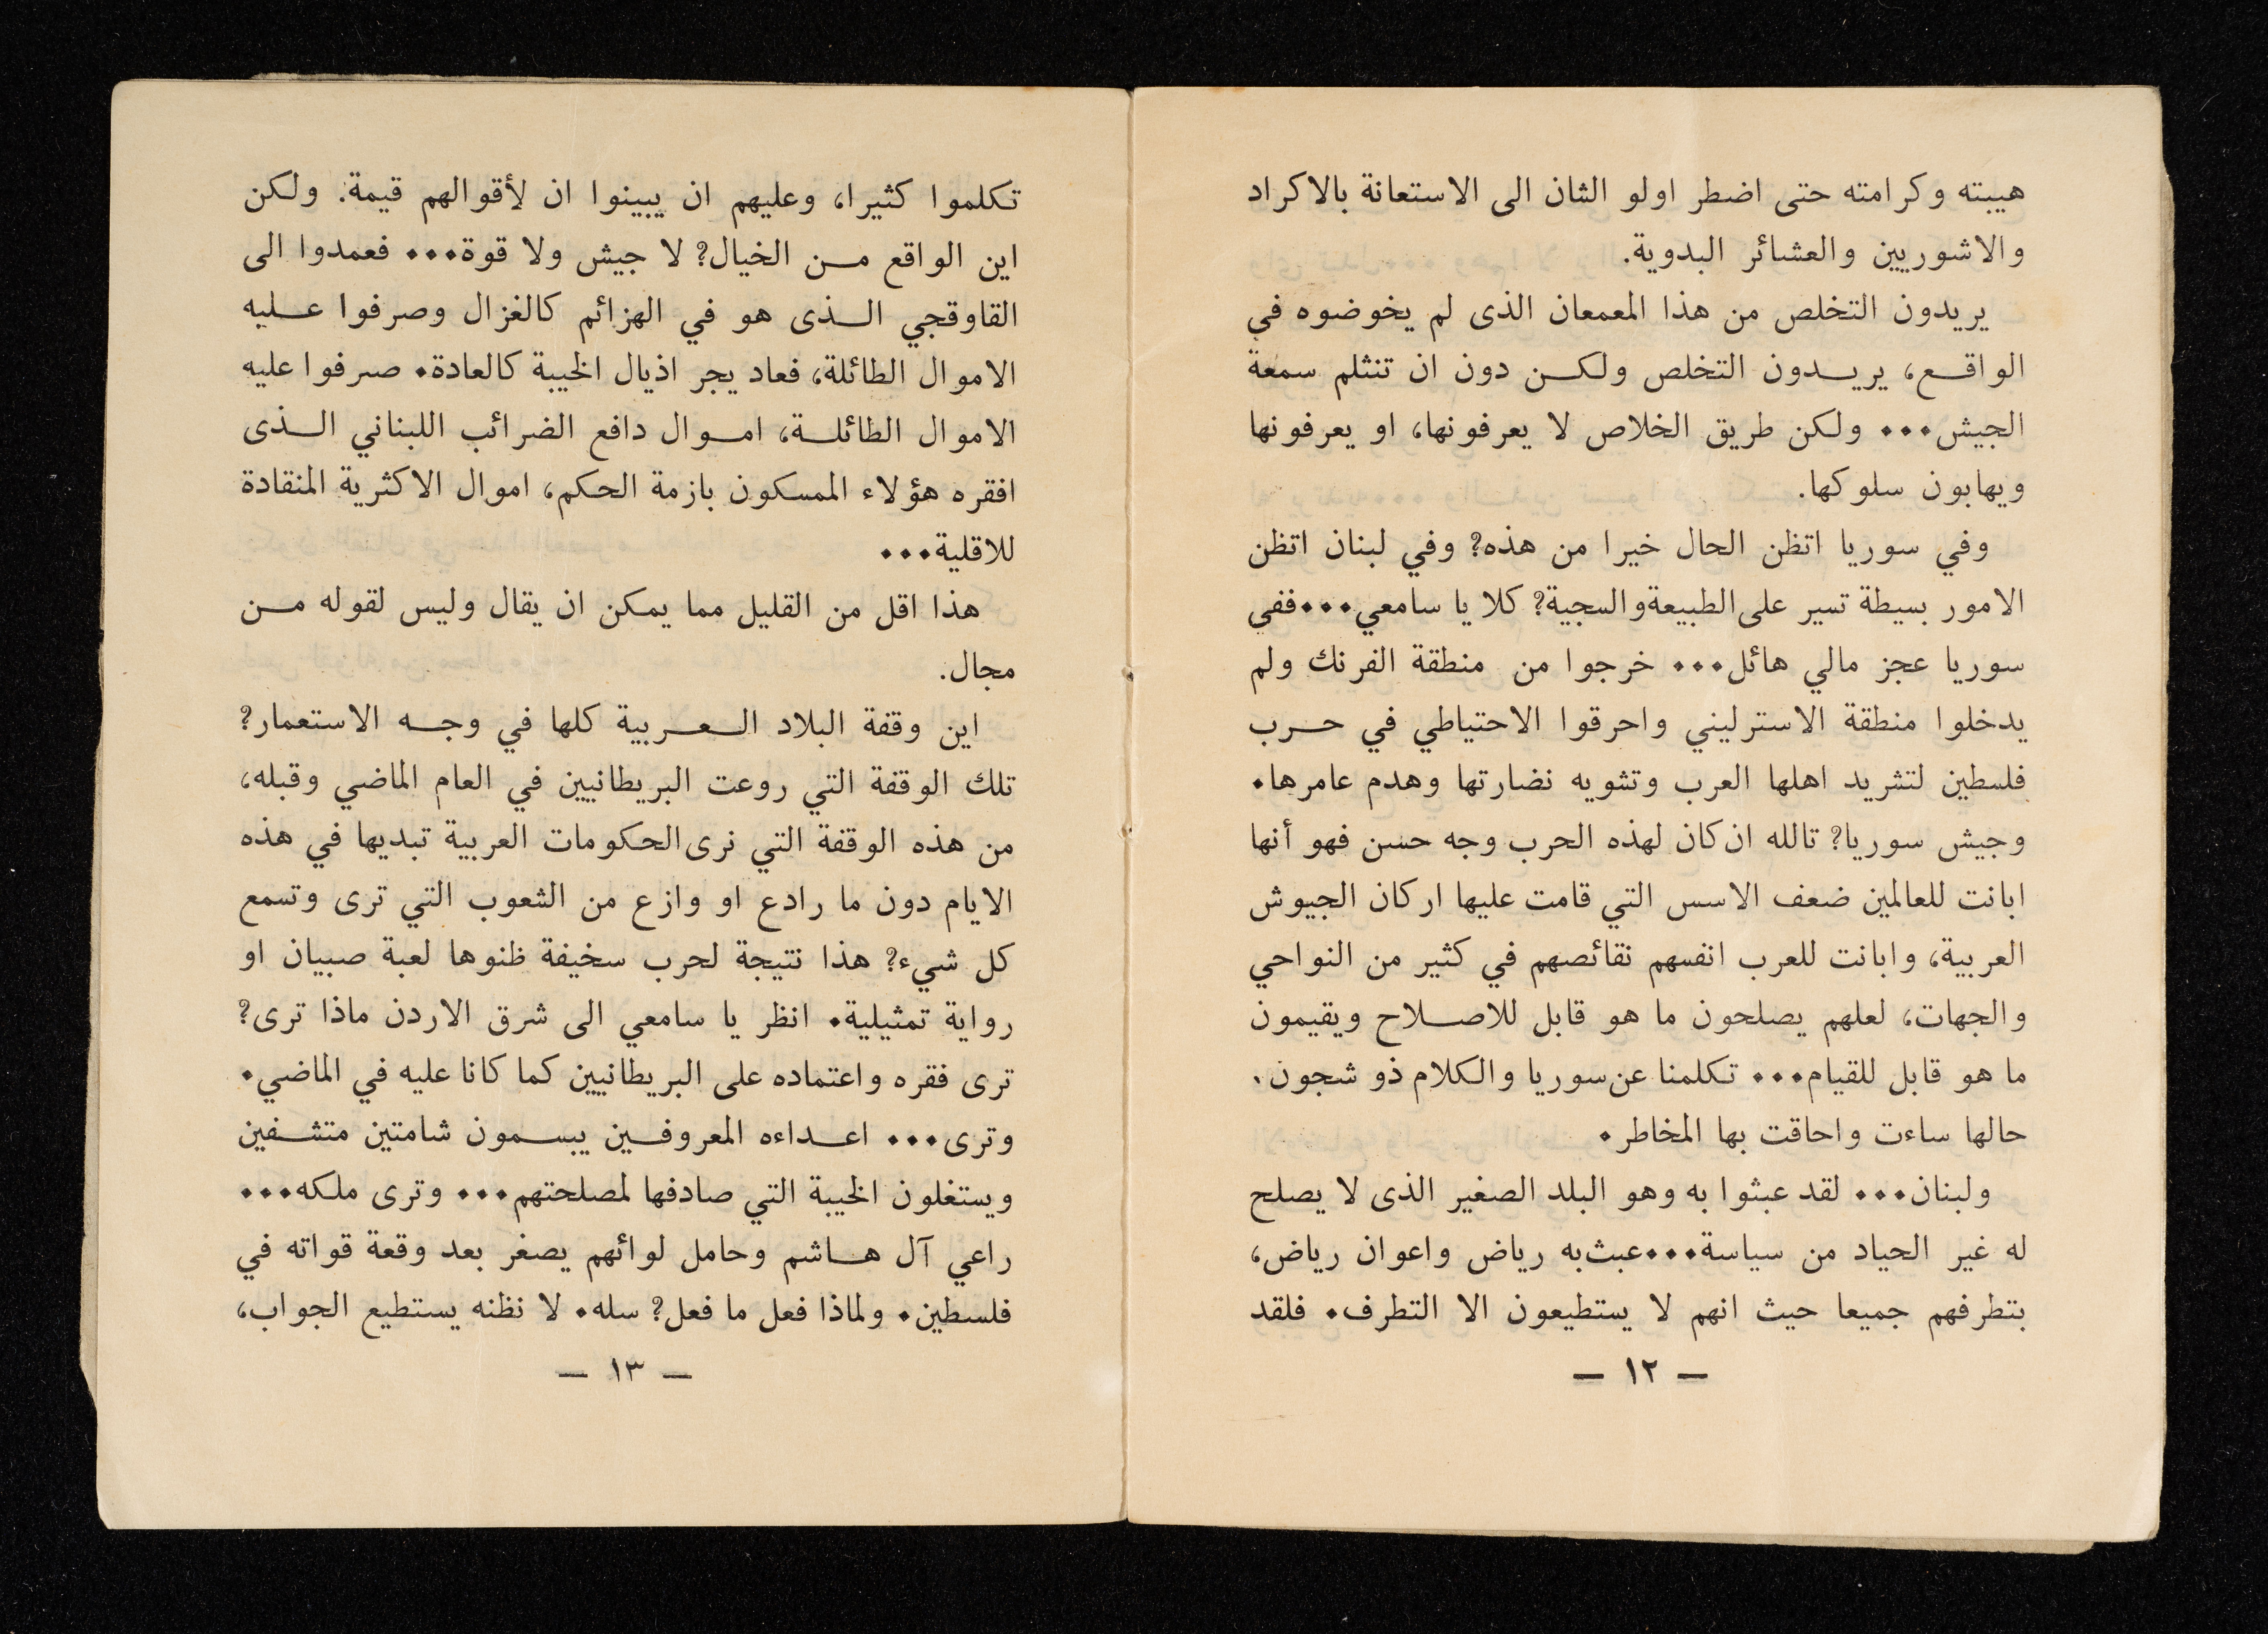 هيبته وكرامته حتى اضطر اولو الشان الى الاستعانة بالاكراد
والاشوريين والعشائر البدوية.
يريدون التخلص من هذا المعمعان الذى لم يخوضوه في
الواقع، يريدون التخلص ولكن دون ان تنثلم سمعة
الجيش... ولكن طريق الخلاص لا يعرفونها، او يعرفونها
ويهابون سلوكها.
وفي سوريا اتظن الحال خيرا من هذه؟ وفي لبنان اتظن
الامور بسيطة تسير على الطبيعة والسجية؟ كلا يا سامعي... ففي
سوريا عجز مالي هائل... خرجوا من منطقة الفرنك ولم
يدخلوا منطقة الاسترليني واحرقوا الاحتياطي في حرب
فلسطين لتشريد اهلها العرب وتشويه نضارتها وهدم عامرها.
وجيش سوريا؟ تالله ان كان لهذه الحرب وجه حسن فهو أنها
ابانت للعالمين ضعف الاسس التي قامت عليها اركان الجيوش
العربية، وابانت للعرب انفسهم نقائصهم في كثير من النواحي
والجهات، لعلهم يصلحون ما هو قابل للاصلاح ويقيمون
ما هو قابل للقيام... تكلمنا عن سوريا والكلام ذو شجون.
حالها ساءت واحاقت بها المخاطر.
ولبنان... لقد عبثوا به وهو البلد الصغير الذى لا يصلح
له غير الحياد من سياسة... عبث به رياض واعوان رياض،
بتطرفهم جميعا حيث انهم لا يستطيعون الا التطرف. فلقد
— ١٢ —
تكلموا كثيرا، وعليهم ان يبينوا ان لأقوالهم قيمة. ولكن
اين الواقع من الخيال؟ لا جيش ولا قوة... فعمدوا الى
القاوقجي الذى هو في الهزائم كالغزال وصرفوا عليه
الاموال الطائلة، فعاد يجر اذيال الخيبة كالعادة. صرفوا عليه
الاموال الطائلة، اموال دافع الضرائب اللبناني الذى
افقره هؤلاء الممسكون بازمة الحكم، اموال الاكثرية المنقادة
للاقلية...
هذا اقل من القليل مما يمكن ان يقال وليس لقوله من
مجال.
اين وقفة البلاد العربية كلها في وجه الاستعمار؟
تلك الوقفة التي روعت البريطانيين في العام الماضي وقبله،
من هذه الوقفة التي نرى الحكومات العربية تبديها في هذه
الايام دون ما رادع او وازع من الشعوب التي ترى وتسمع
كل شيء؟ هذا نتيجة لحرب سخيفة ظنوها لعبة صبيان او
رواية تمثيلية. انظر يا سامعي الى شرق الاردن ماذا ترى؟
ترى فقره واعتماده على البريطانيين كما كانا عليه في الماضي.
وترى... اعداءه المعروفين يبسمون شامتين متشفين
ويستغلون الخيبة التي صادفها لمصلحتهم... وترى ملكه...
راعي آل هاشم وحامل لوائهم يصغر بعد وقعة قواته في
فلسطين. ولماذا فعل ما فعل؟ سله. لا نظنه يستطيع الجواب،
— ١٣ —